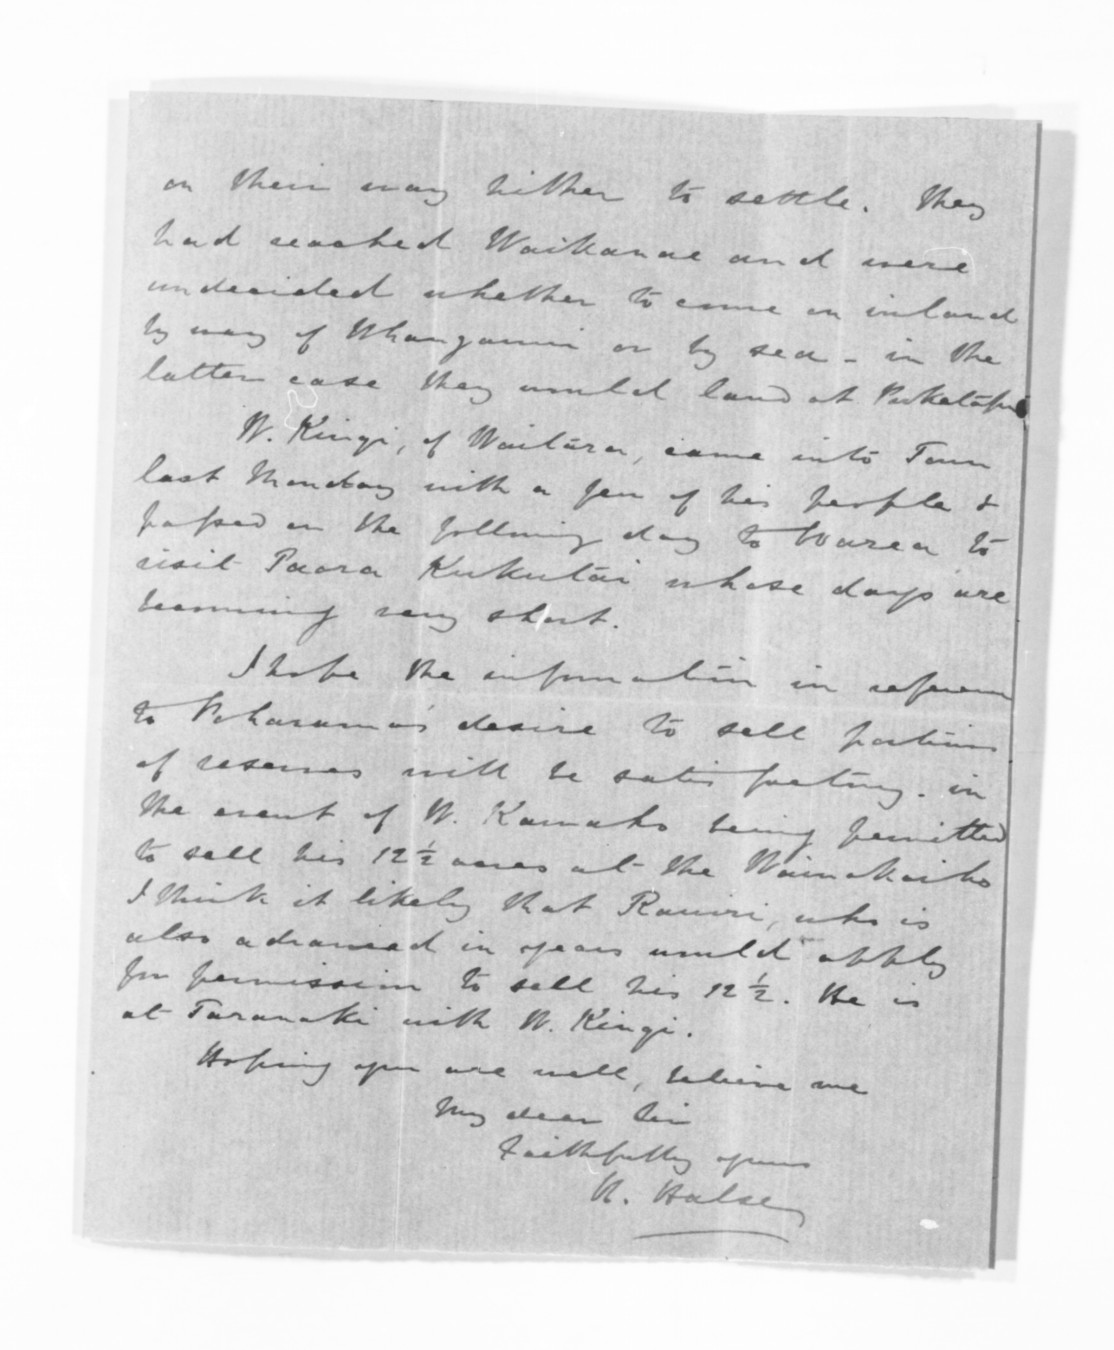 on their way hither to settle. They
had reached Waikanae and were
undecided whether to come on inland
by way of Whanganui or by sea - in the
latter case they would land at Puketapu
W. Kingi, of Waitara, came into Town
last Monday with a few of his people &
passed on the following day to Warea to
visit Paora Kukutai whose days are
becoming very short.
I hope the information in reference
to Poharama's desire to sell portions
of reserves will be satisfactory. in
the event of W. Kamaho being permitted
to sell his 12½ acres at the Waiwakaiho
I think it likely that Rawiri, who is
also advanced in years would apply
for permission to sell his 12½. He is
at Taranaki with W. Kingi.
Hoping you are well, believe me
My dear Sir
Faithfully yours
H. Halse